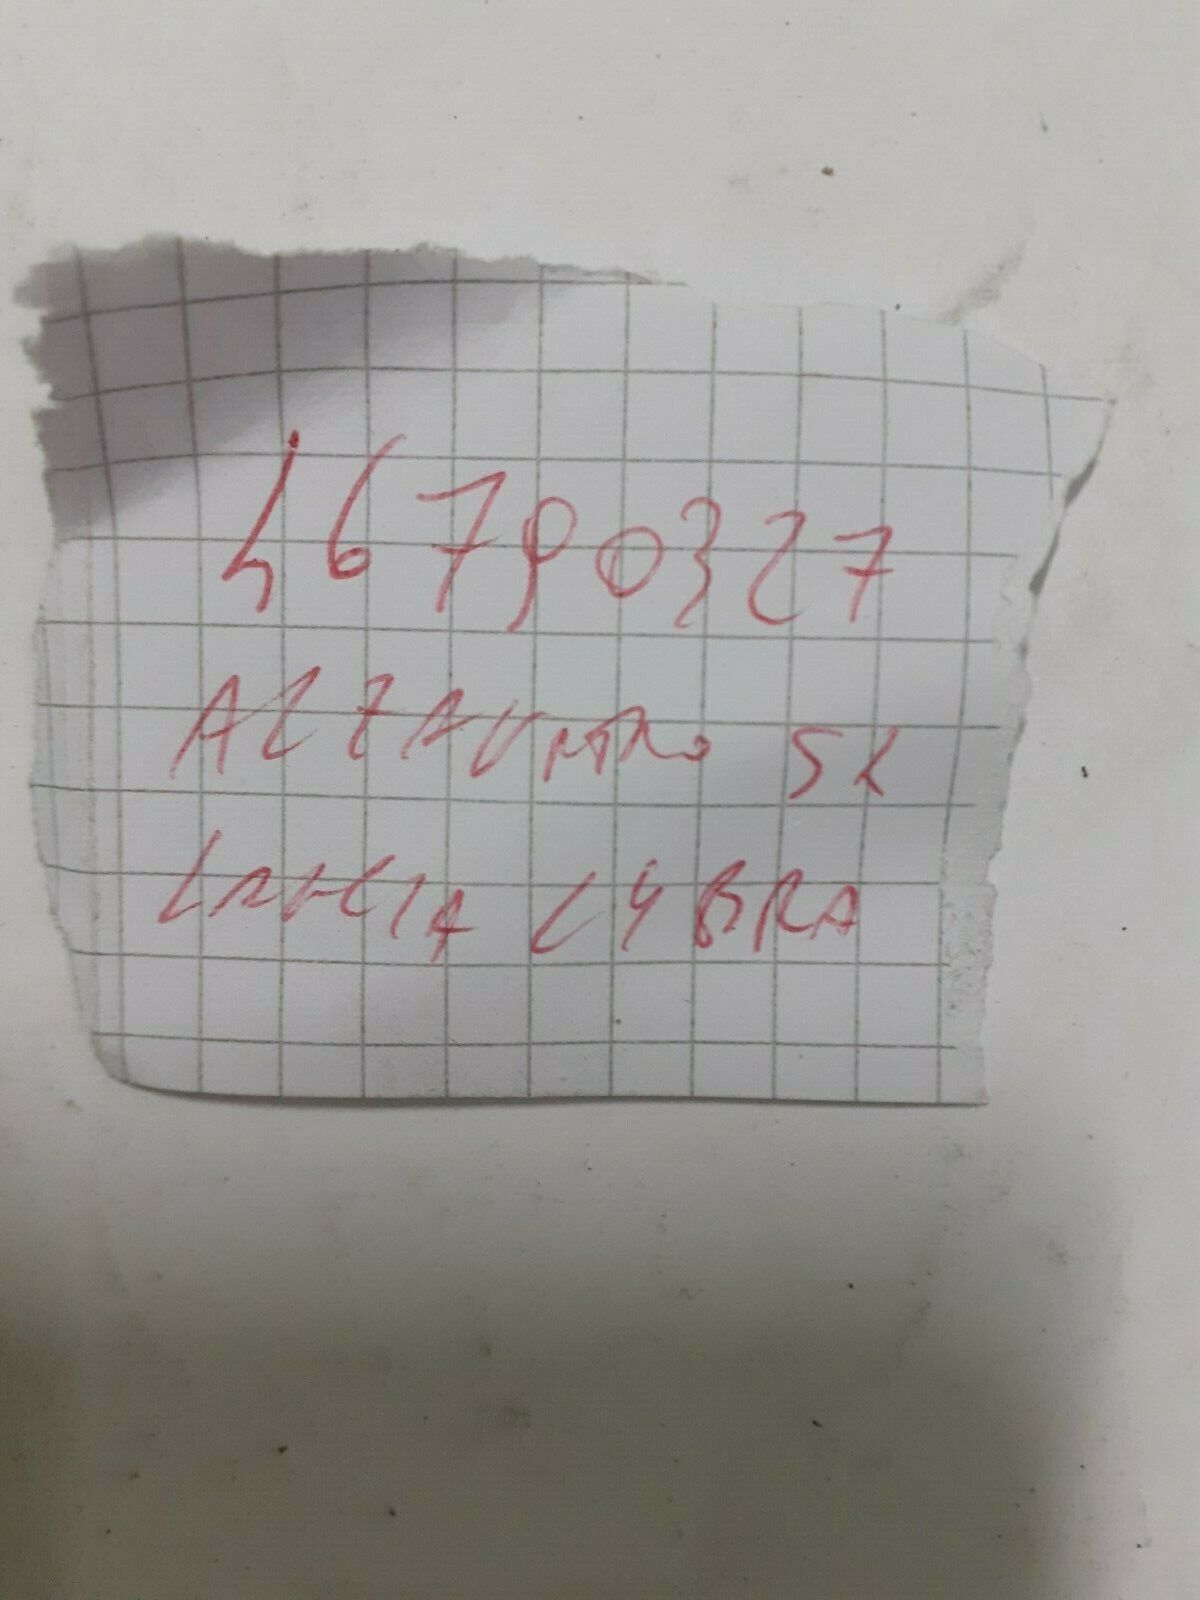 46790327
ALZAVETRO SX
LANCIA LYBRA